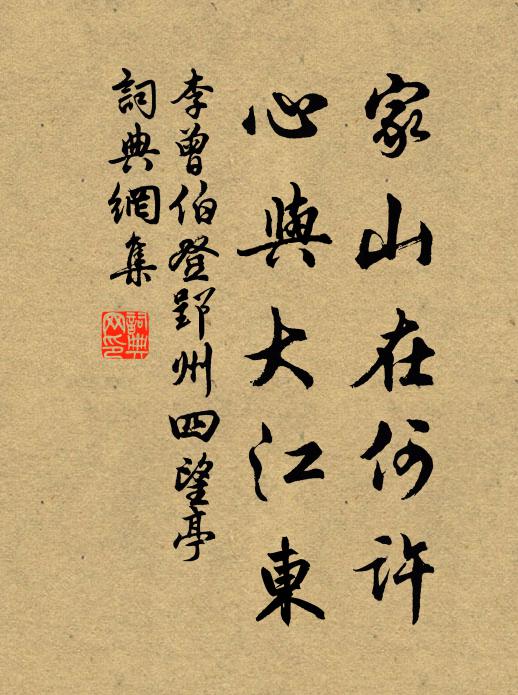 家山在何許
心與大江東
李曾伯登郢州四望亭
詞典網集
詞典網印